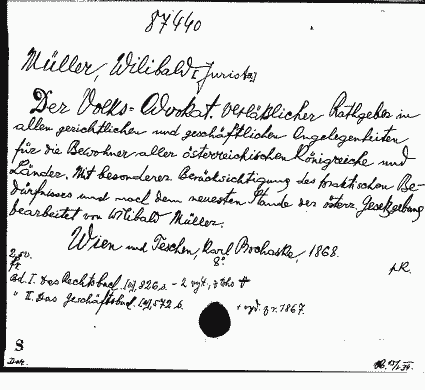 87440
Müller, Wilibald [Jurista]
Der Volks-Advokat. Verläßlicher Rathgeber in
allen gerichtlichen und geschäftlichen Angelegenheiten
für die Bewohner aller österreichischen Königreiche und
Länder. Mit besonderer Berücksichtigung des praktischen Be-
dürfnisses und nach dem neuesten Stande der österr. Gesetzgebung
bearbeitet von Wilibald Müller.
Wien und Teschen, Karl Prochaska, 1868.
8°.
2 sv.
Bd. I. Das Rechtsbuch. 826 s. - 2
" II. Das Geschäftsbuch. 572 s.
1867.
S